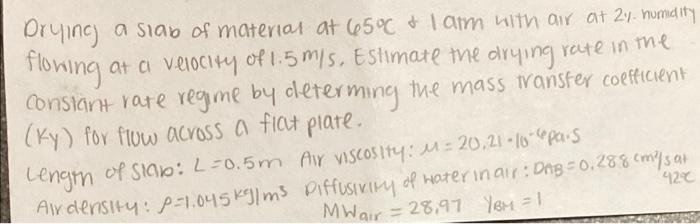 Drying a slab of material at 65°C & 1 atm with air at 2% humidity
flowing at a velocity of 1.5 m/s. Estimate the drying rate in the
constant rate regime by determing the mass transfer coefficient
(Ky) for flow across a flat plate.
Length of slab: L=0.5m Air viscosity: μ = 20.21·10⁻⁶ pa·s
Air density: ρ=1.045 kg/m³ Diffusivity of water in air: DAB = 0.288 cm²/s at 42°C
MWair = 28.97 YBM = 1